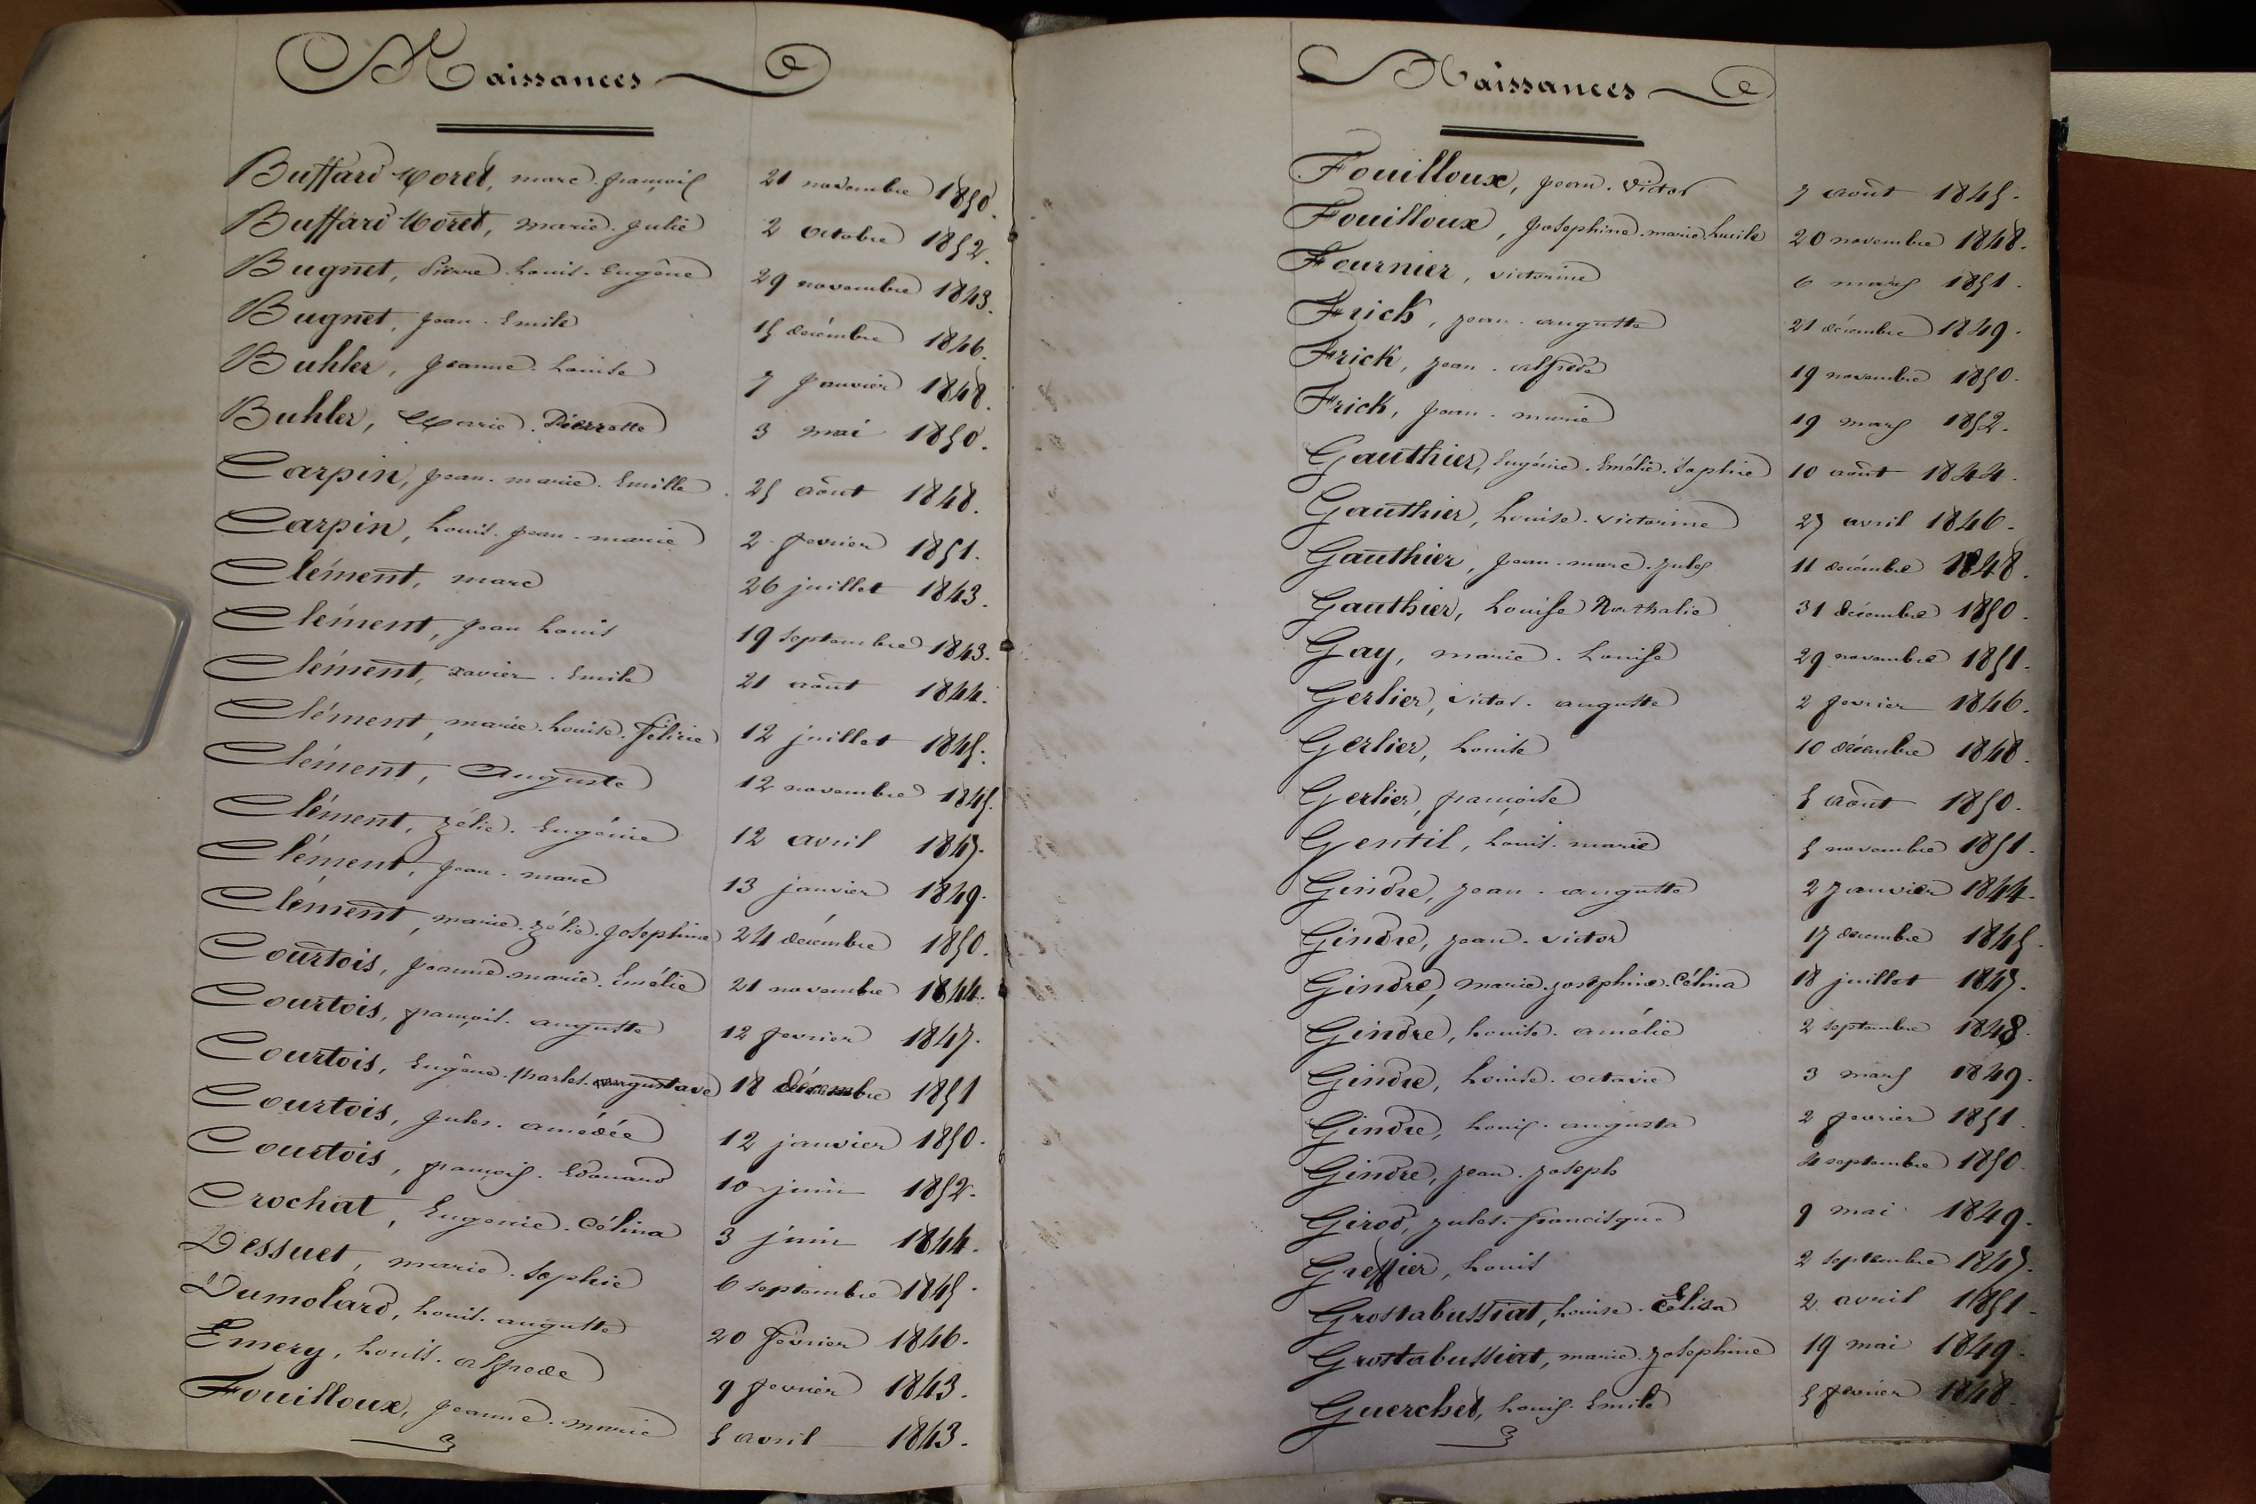 Naissances
Buffard Moret, marc. françois 21 novembre 1850.
Buffard Moret, marie. julie 2 octobre 1852.
Bugnet, Pierre. Louis. Eugène 29 novembre 1843.
Bugnet, jean. Emile 15 decémbre 1846.
Buhler, jeanne. Louise 7 janvier 1848.
Buhler, Marie. Pierrette 3 mai 1850.
Carpin, jean. marie. Emille. 25 août 1848.
Carpin, Louis. jean. marie 2. fevrier 1851.
Clément, marc 26 juillet 1843.
Clément, jean Louis 19 septembre 1843.
Clément, xavier. Emile 21 août 1844.
Clément, marie. Louise. félicie 12 juillet 1845.
Clément, Auguste 12 novembre 1845.
Clément, Zélie. Eugénie 12 avril 1847.
Clément, jean. marc 13 janvier 1849.
Clément, marie. Zélie. josephine 24 décémbre 1850.
Courtois, jeanne. marie. Emélie 21 novembre 1844.
Courtois, françois. auguste 12 fevrier 1847.
Courtois, Eugène. Charles. augustave 18 décembre 1851
Courtois, jules. amédée 12 janvier 1850.
Courtois, françois. Edouard 10 juin 1852.
Crochat, Eugenie. Célina 3 juin 1844.
Dessuet, marie. Sophie 6 septembre 1845.
Dumolard, Louis. auguste 20 février 1846.
Emery, Louis. alfrede 9 fevrier 1843.
Fouilloux, jeanne. marie 5 avril 1843.
Naissances
Fouilloux, jean. Victor 7 août 1845.
Fouilloux, josephine. marie. Lucile 20 novembre 1848.
Fournier, victorine 6 mars 1851.
Frick, jean. auguste 21 décembre 1849.
Frick, jean. alfrede 19 novembre 1850.
Frick, jean. marie 19 mars 1852.
Gauthier, Eugénie. Emélie. Sophie 10 août 1844.
Gauthier, Louise. victorine 27 avril 1846.
Gauthier, jean. marc. jules 11 decémbre 1848.
Gauthier, Louise Nathalie 31 décembre 1850.
Gay, marie. Louise 29 novembre 1851.
Gerlier, victor. auguste 2 fevrier 1846.
Gerlier, Louise 10 décembre 1848.
Gerlier, françoise 5 août 1850.
Gentil, Louis. marie 5 novembre 1851.
Gindre, jean. auguste 2 janvier 1844.
Gindre, jean. victor 17 decembre 1845.
Gindre, marie. josephine. Célina 18 juillet 1847.
Gindre, Louise. amélie 2 septembre 1848.
Gindre, Louise. octavie 3 mars 1849.
Gindre, Louis. augusta 2 fevrier 1851.
Gindre, jean. joseph 4 septembre 1850.
Girod, jules. francisque 9 mai 1849.
Greffier, Louis 2 septembre 1847.
Grostabussiat, Louise. Elisa 2 avril 1851.
Grostabussiat, marie. josephine 19 mai 1849.
Guerchet, Louis. Emile 5 fevrier 1848.